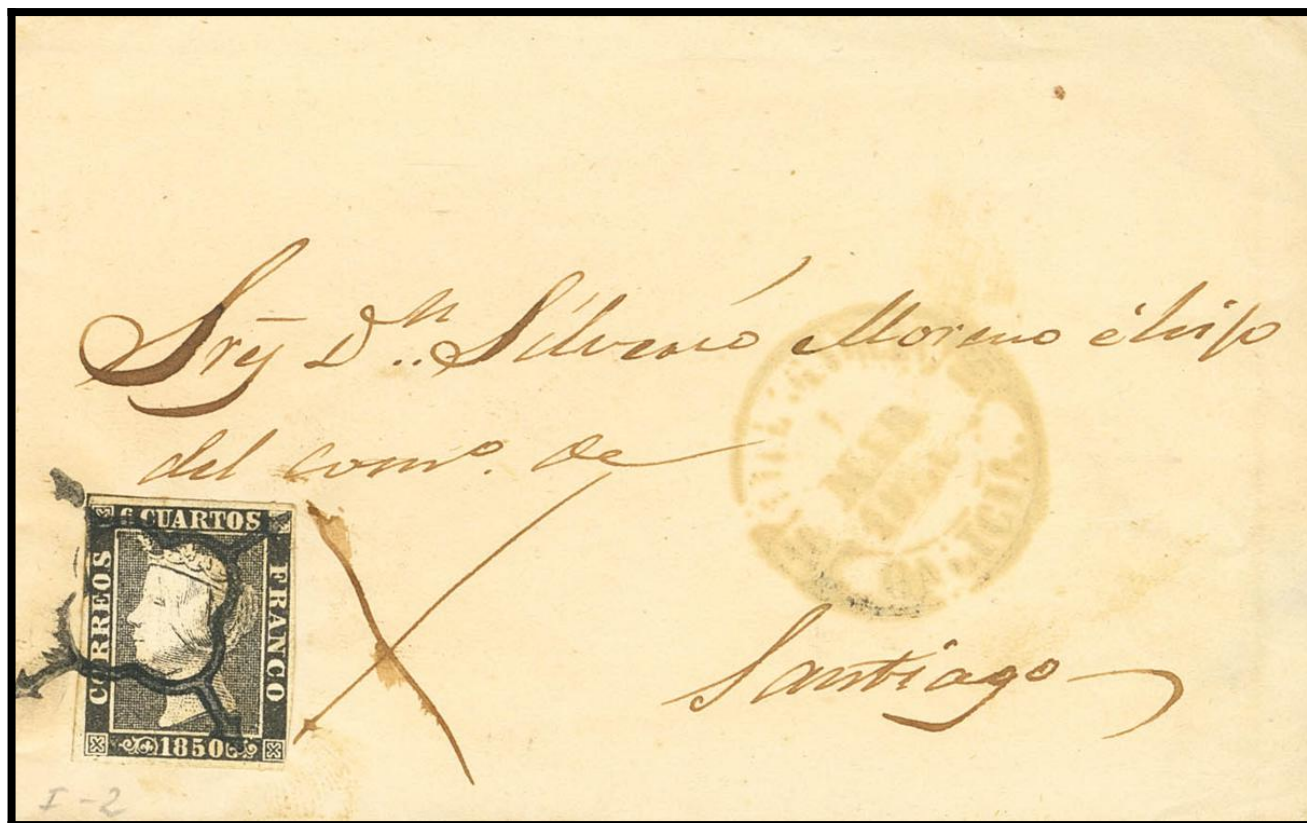 Sres Dn. Silverio Moreno é hijo
del como. de
Santiago
6 CUARTOS
CORREOS
FRANCO
1850
I-2